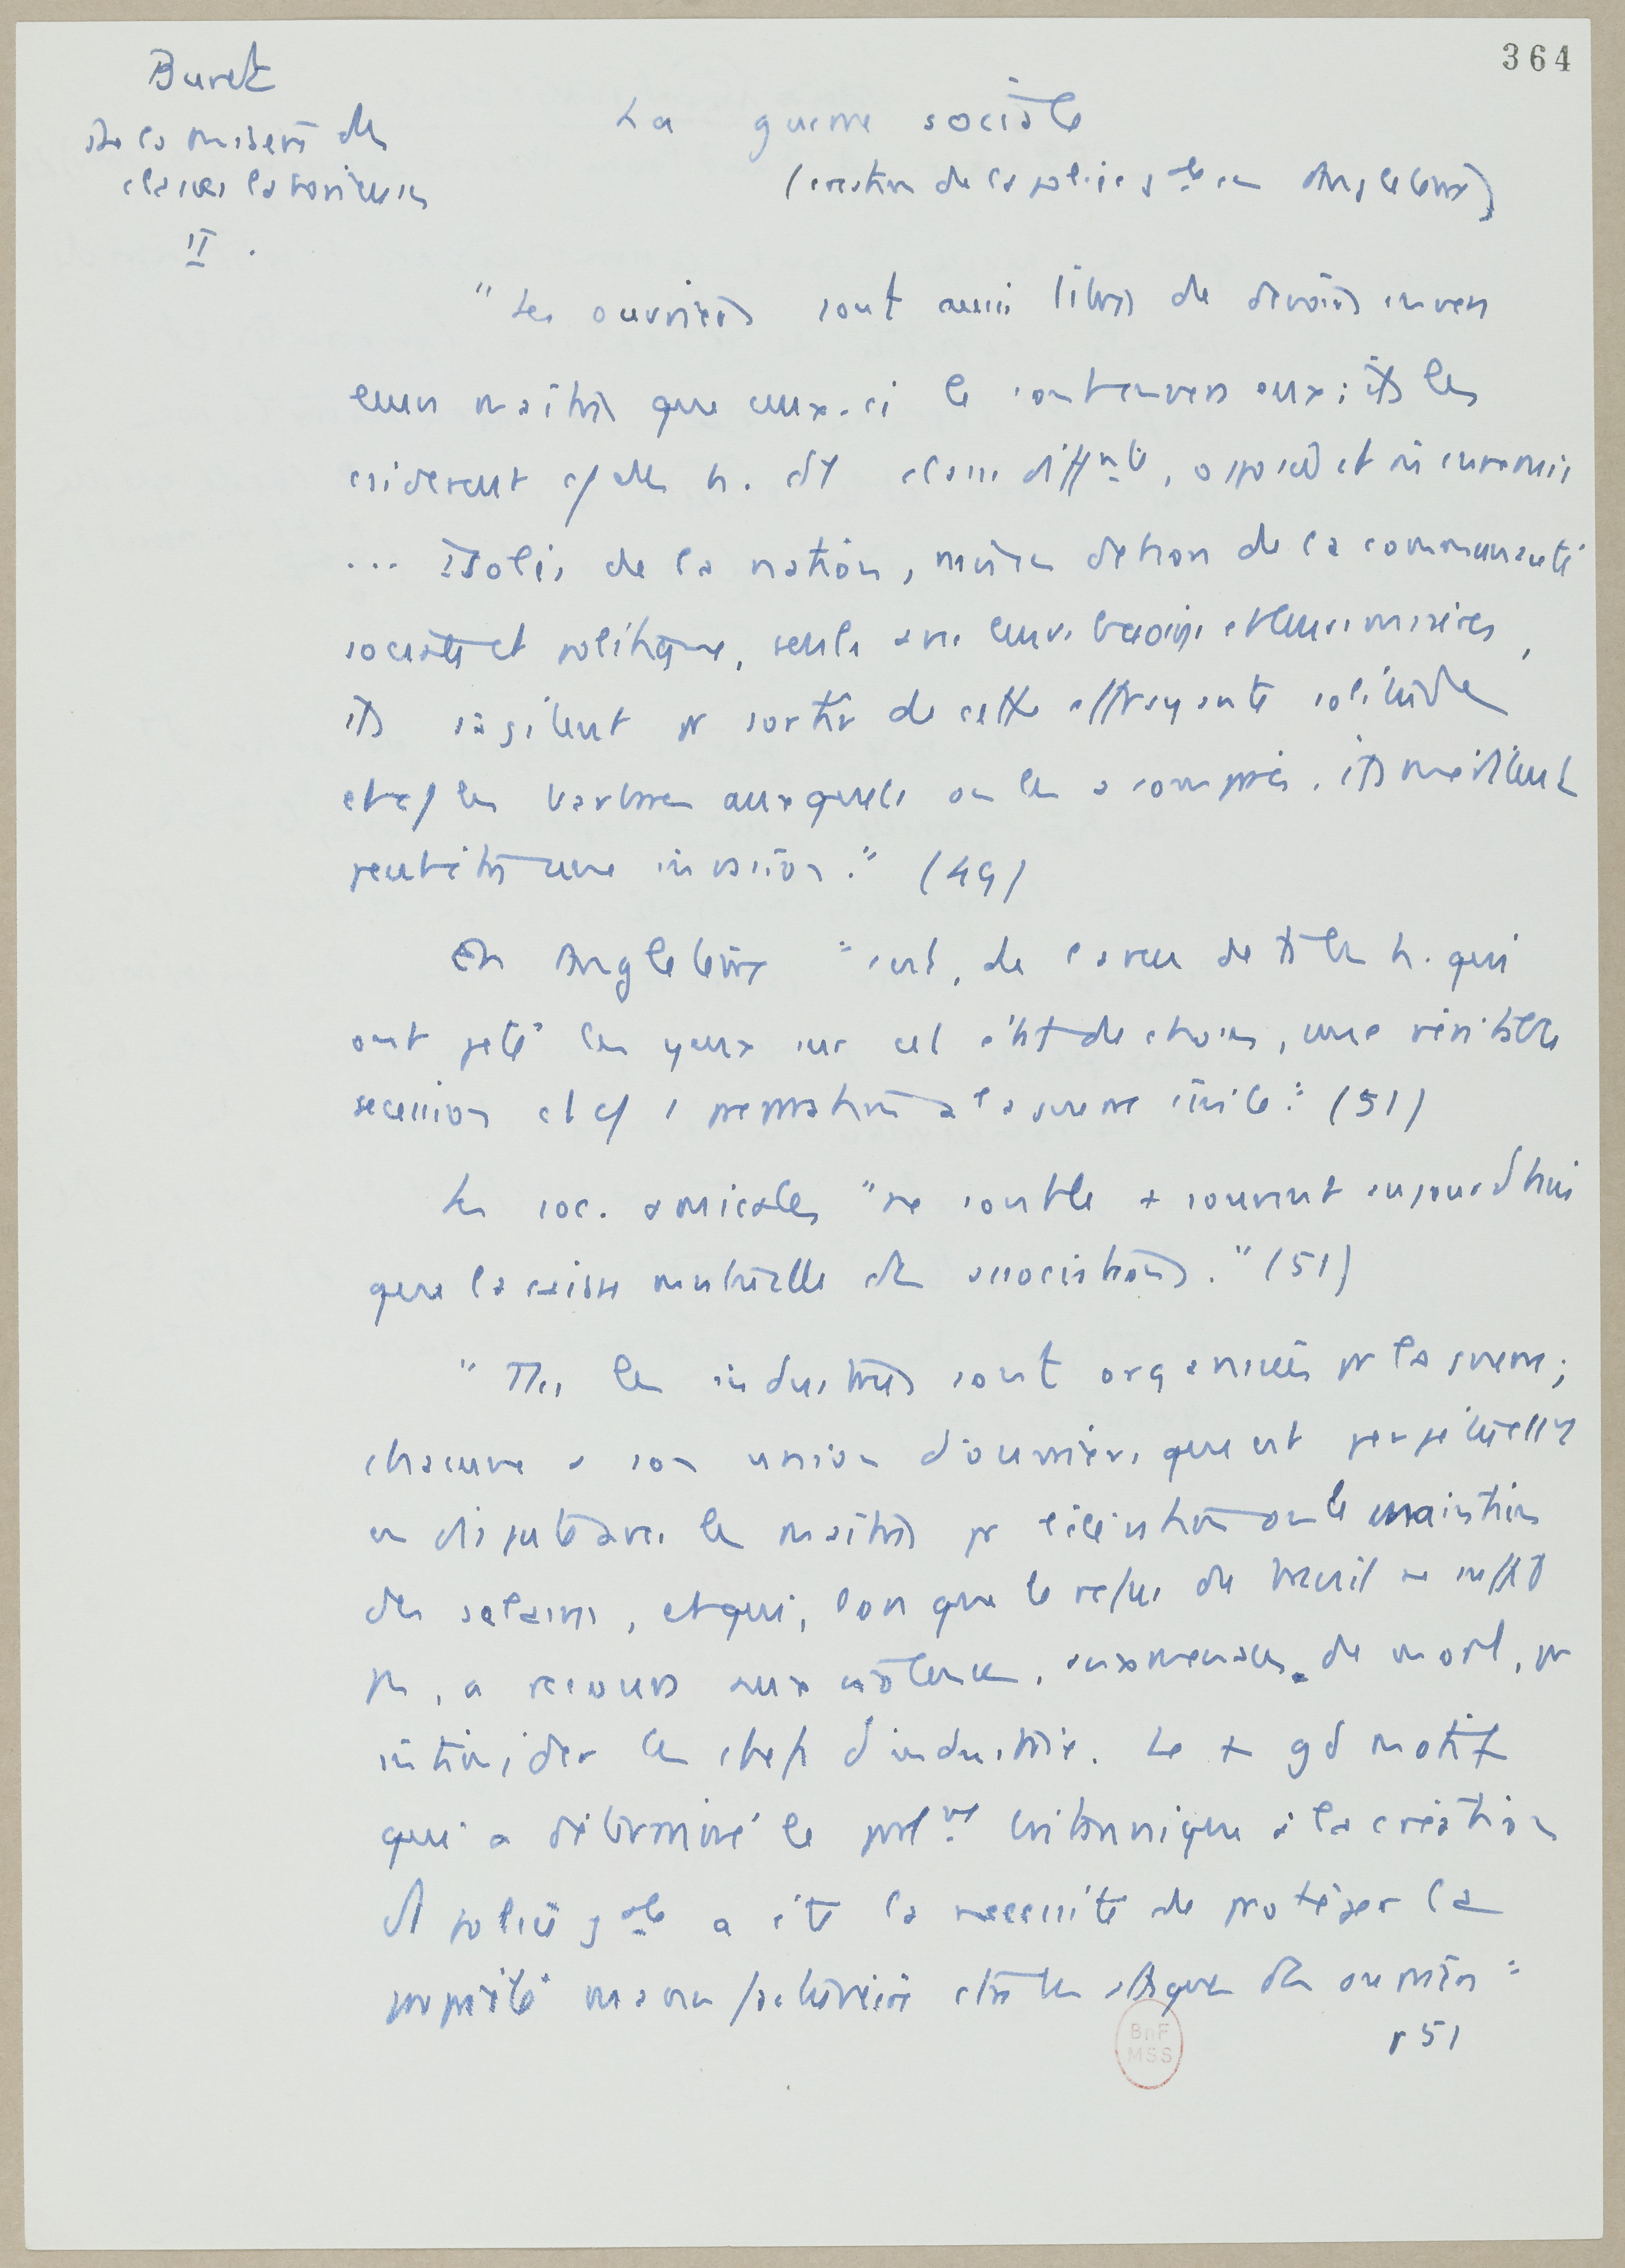 364
Buret
De la misère des
classes laborieuses
II.
La guerre sociale
(création de la police gale en Angleterre)
"Les ouvriers sont aussi libres de devoirs envers
leurs maîtres que ceux-ci le sont envers eux; ils les
considèrent c/ des h. d'1 classe diffnte, opposée et m ennemie
... Isolés de la nation, mis en dehors de la communauté
sociale et politique, seuls avec leurs besoins et leurs misères,
ils s'agitent pr sortir de cette effrayante solitude
et c/ les barbares auxquels on les a comparés, ils méditent
peut-être une invasion." (49)
En Angleterre "c'est, de l'aveu de ts les h. qui
ont jeté les yeux sur cet état de choses, une véritable
sécession et c/ 1 préparation à la guerre civile" (51)
Les soc. amicales "ne sont le + souvent aujourd'hui
que la caisse mutuelle des associations." (51)
"Ttes les industries sont organisées pr la guerre;
chacune a son union d'ouvriers qui est perpétuellt
en dispute avec les maîtres pr l'élévation ou le maintien
des salaires, et qui, lorsque le refus du travail ne suffit
pas, a recours aux violences, aux menaces de mort, pr
intimider les chefs d'industrie. Le + gd motif
qui a déterminé le parlnt britannique à la création
d'1 police gale a été la nécessité de protéger la
propriété manufacturière contre les attaques des ouvriers"
p 51
BnF
MSS